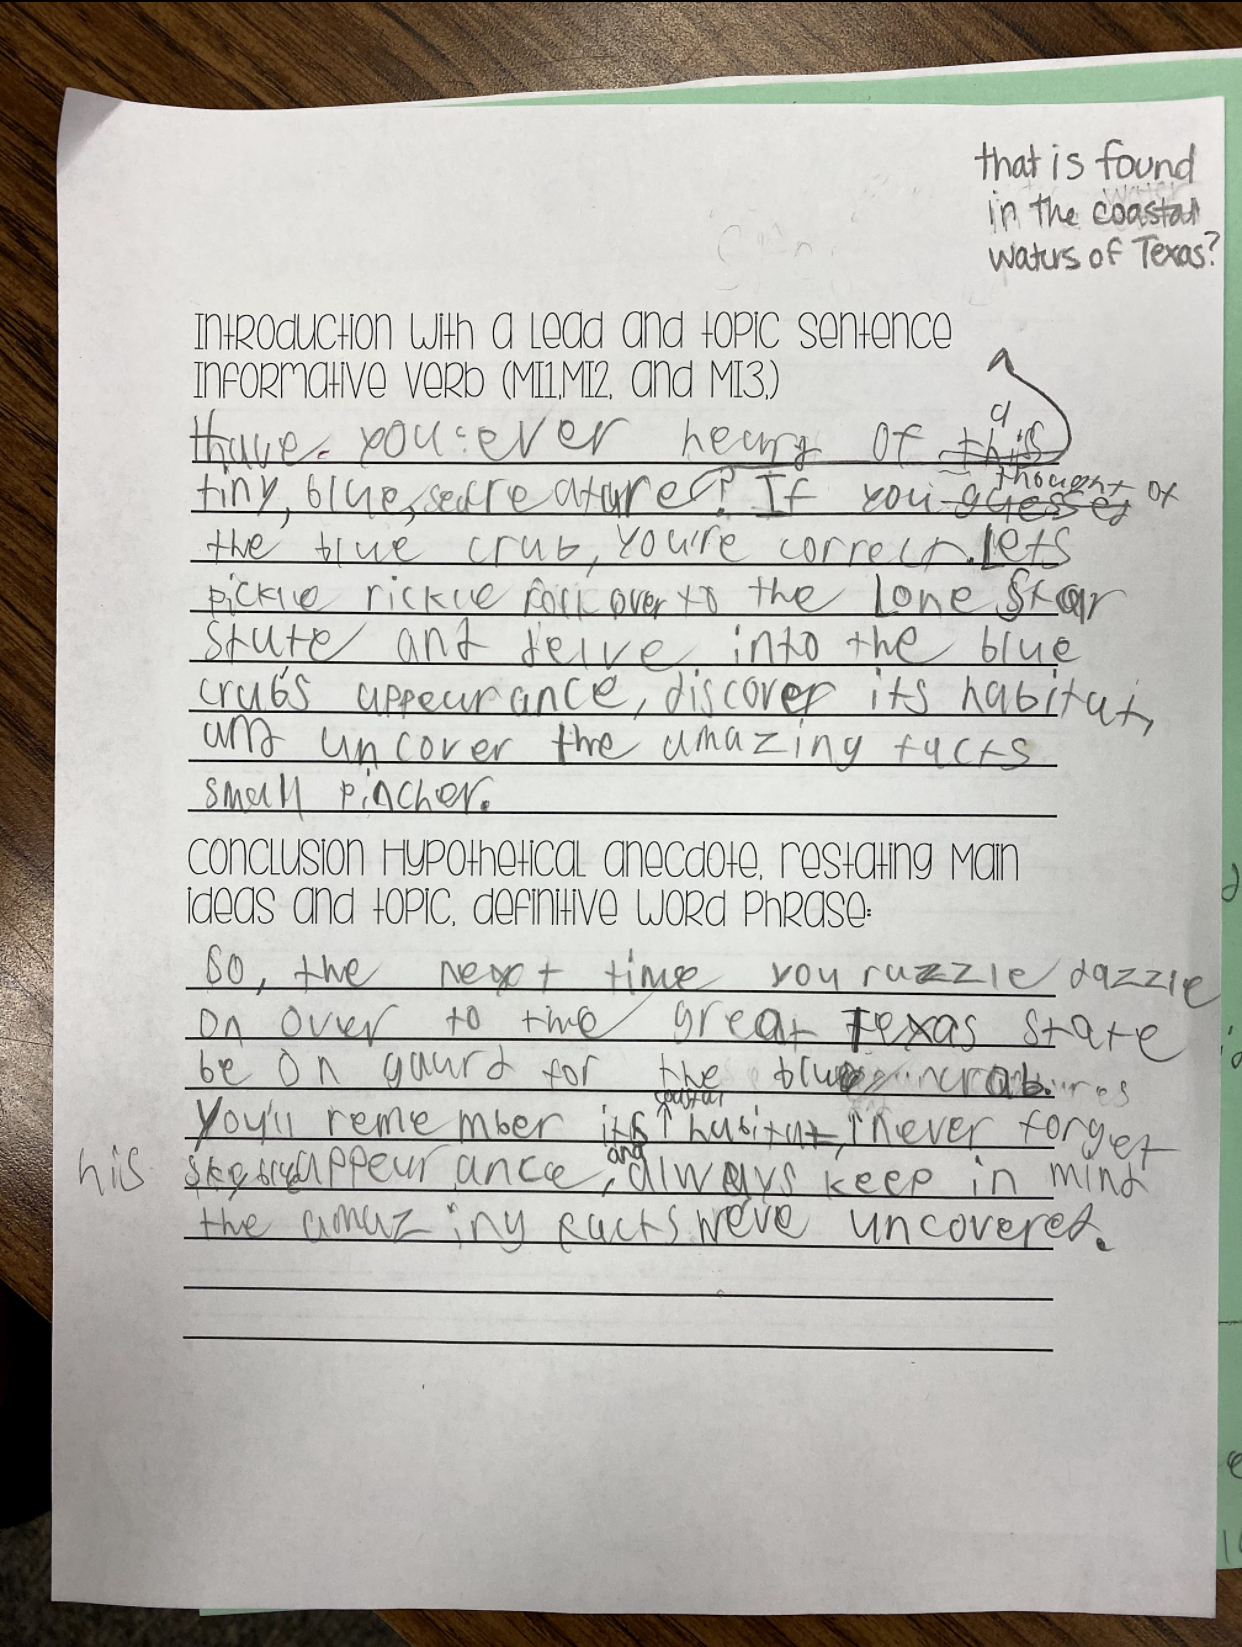 that is found
in the coastal
waters of Texas?
Introduction with a Lead and topic sentence
Informative verb (MI1,MI2, and MI3,)
a
Have you ever heard of this
thought of
tiny, blue, sea creature? If you guessed
the blue crab, you're correct. Lets
pickle rickle roll over to the Lone Star
State and delve into the blue
crab's appearance, discover its habitat,
and uncover the amazing facts
small pincher.
Conclusion Hypothetical anecdote, restating Main
ideas and topic, definitive word phrase:
So, the next time you razzle dazzle
on over to the great Texas State
be on gaurd for the blue crab.
coastal
You'll remember its habitat, never forget
and
his appearance, always keep in mind
the amazing facts we've uncovered.